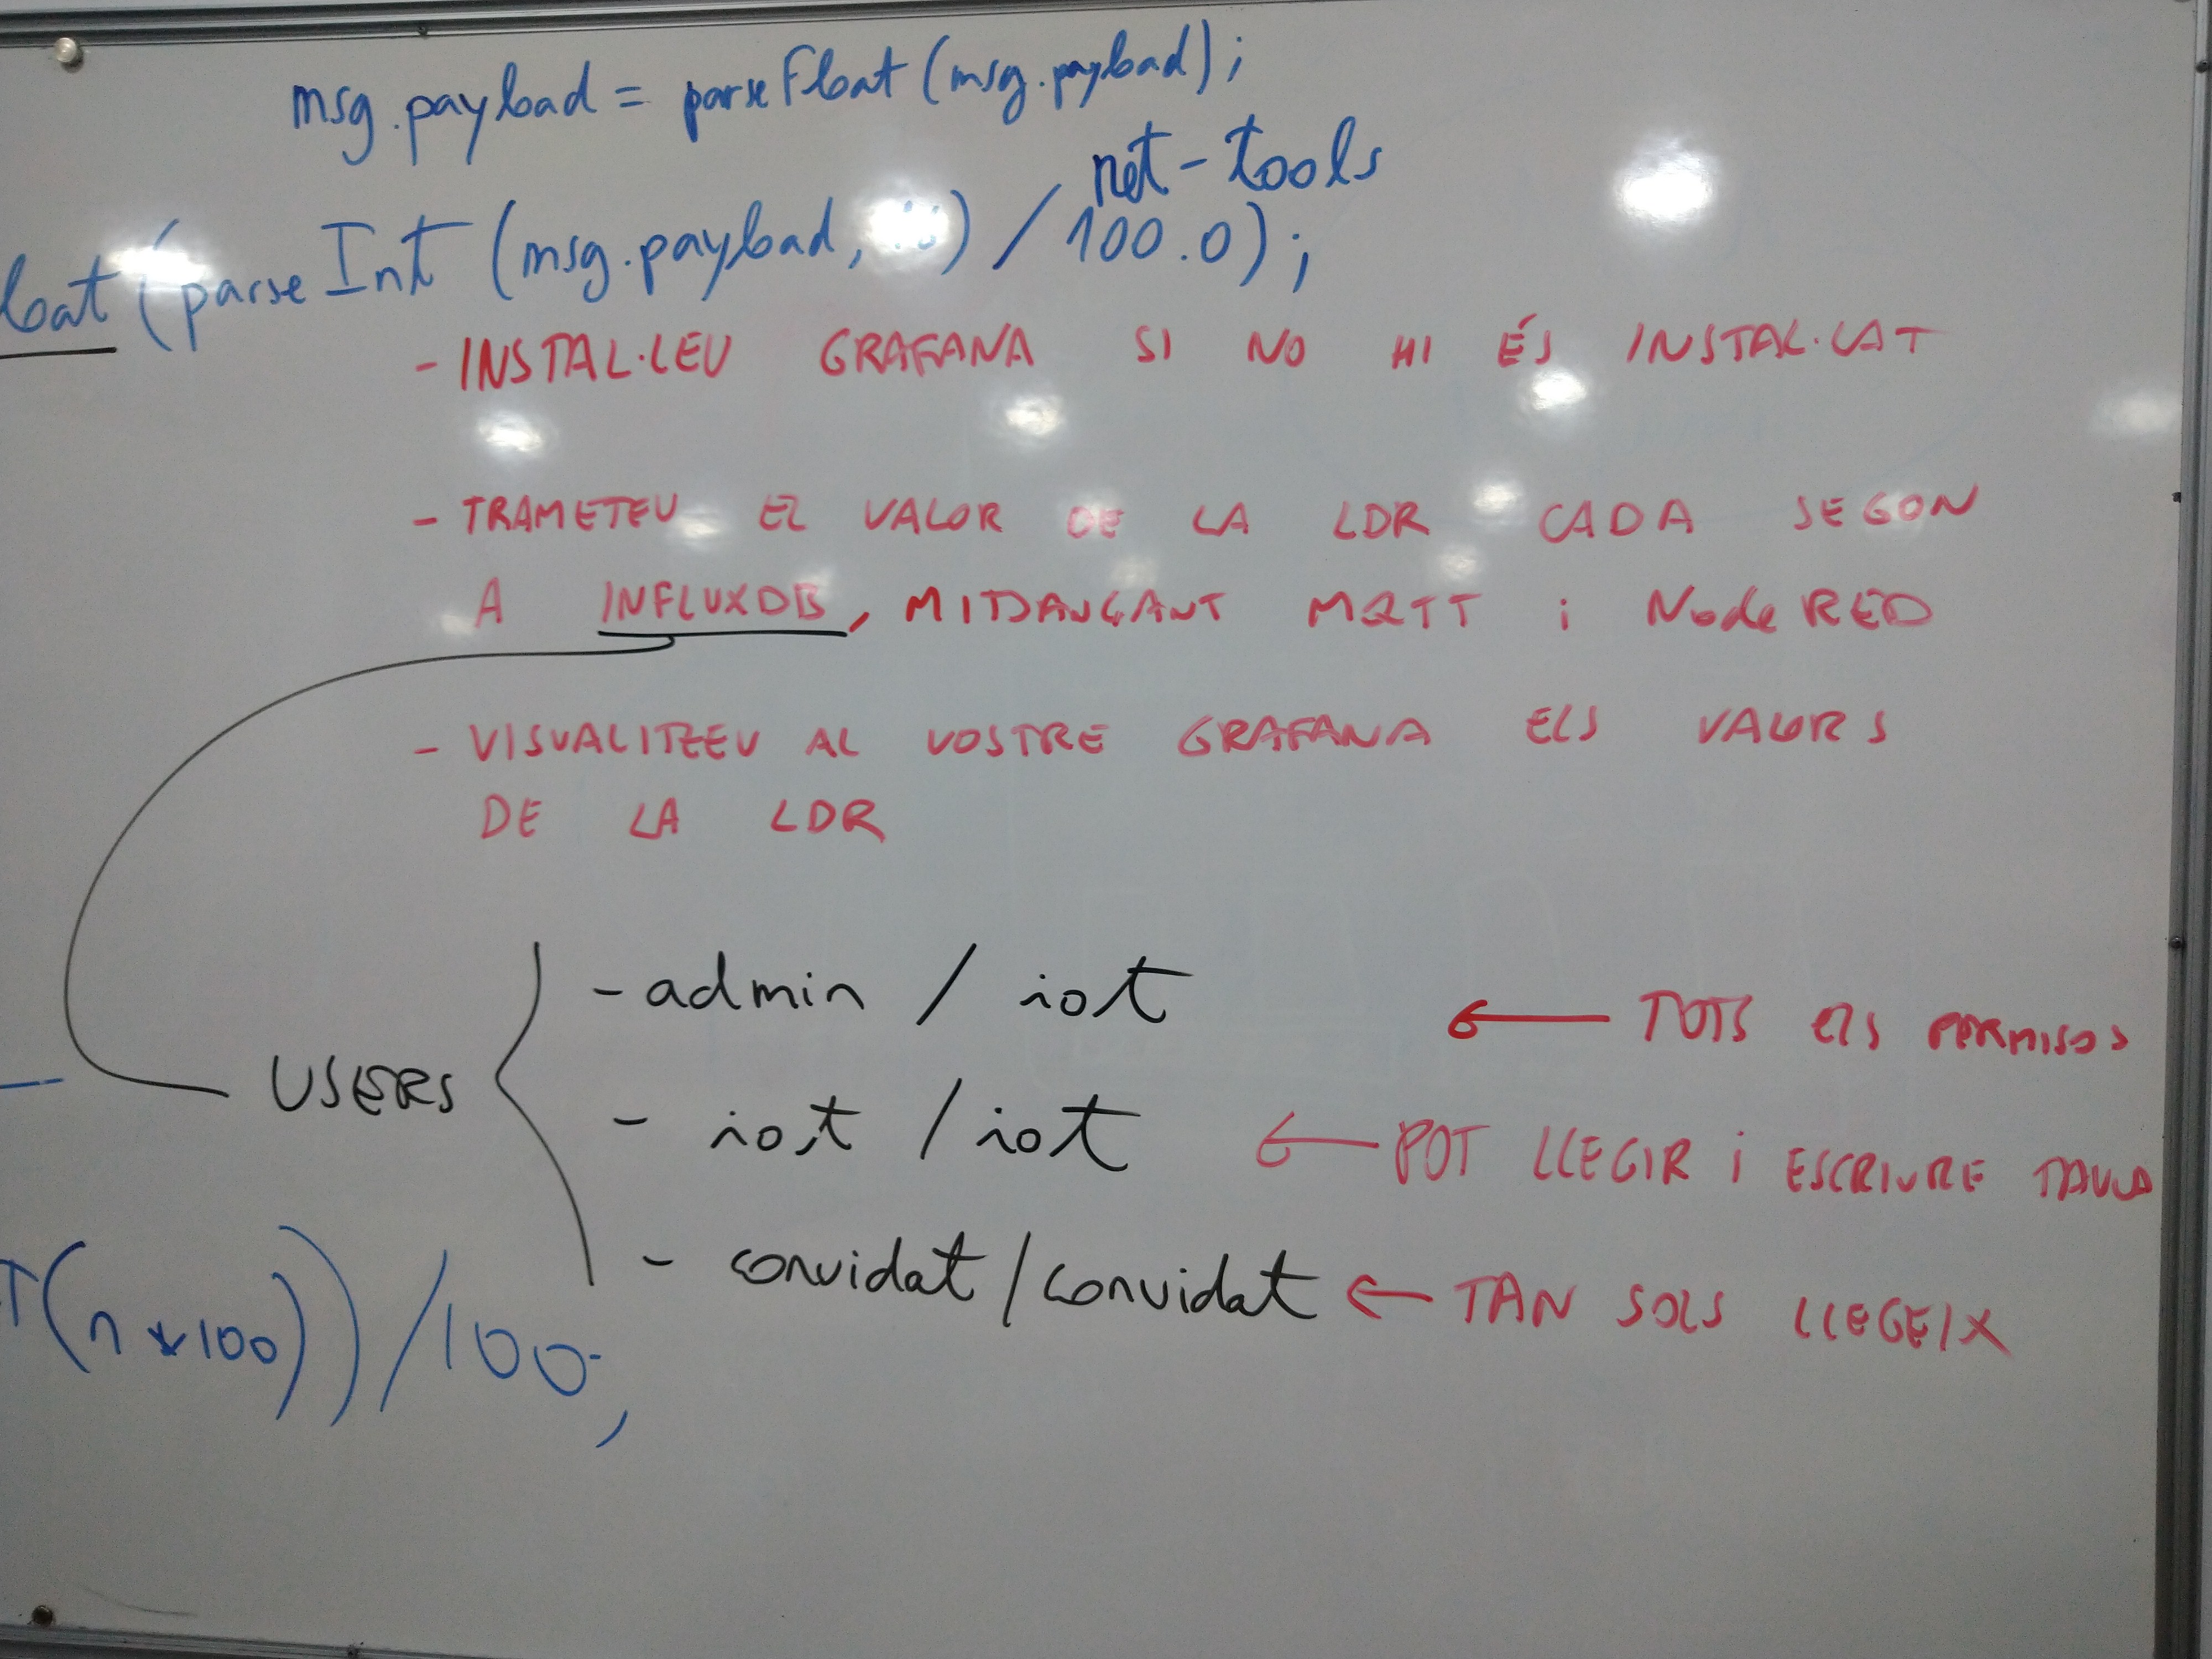 msg.payload = parseFloat (msg.payload);
net-tools
loat (parseInt (msg.payload, ) / 100.0);
- INSTAL·LEU GRAFANA SI NO HI ÉS INSTAL·LAT
- TRAMETEU EL VALOR DE LA LDR CADA SEGON
A INFLUXDB, MITJANÇANT MQTT i Node RED
- VISUALITZEU AL VOSTRE GRAFANA ELS VALORS
DE LA LDR
- admin / iot ← TOTS ELS PERMISOS
USERS
- iot / iot ← POT LLEGIR i ESCRIURE TAULA
- convidat / convidat ← TAN SOLS LLEGEIX
T(n*100))/100;